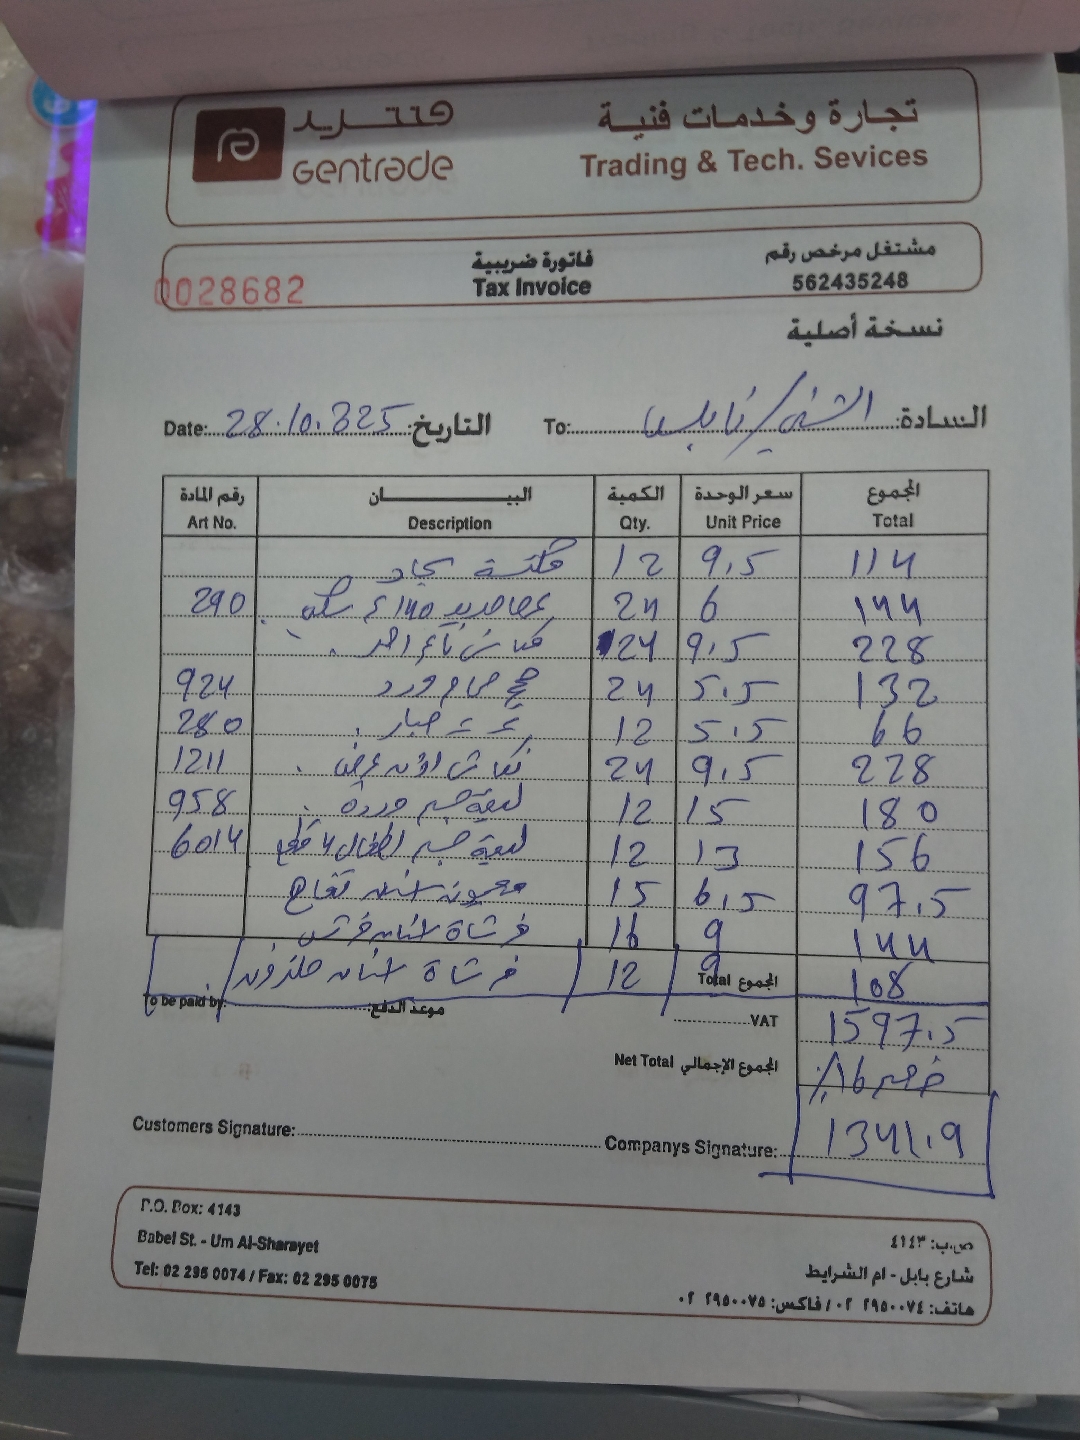 جنتريد
Gentrade
تجارة وخدمات فنية
Trading & Tech. Sevices
مشتغل مرخص رقم
562435248
فاتورة ضريبية
Tax Invoice
0028682
نسخة أصلية
السادة: To:
التاريخ: Date: 28.10.2025
رقم المادة البيان الكمية سعر الوحدة المجموع
Art No. Description Qty. Unit Price Total
مكنسة سجاد 12 9.5 114
290 عصا حديد 24 6 144
24 9.5 228
924 24 5.5 132
280 صبار 12 5.5 66
1211 24 9.5 228
958 ليفة جسم وردة 12 15 180
6014 ليفة جسم اطفال 4 قطع 12 13 156
معجون اسنان تفاح 15 6.5 97.5
فرشاة اسنان 16 9 144
فرشاة اسنان حلزون 12 9 108
Total المجموع
To be paid by: موعد الدفع:
VAT 1597.5
Net Total المجموع الإجمالي خصم 16%
1341.9
Customers Signature: Companys Signature:
P.O. Box: 4143
Babel St. - Um Al-Sharayet
Tel: 02 295 0074 / Fax: 02 295 0075
ص.ب: ٤١٤٣
شارع بابل - ام الشرايط
هاتف: ٢٩٥٠٠٧٤ ٠٢ / فاكس: ٢٩٥٠٠٧٥ ٠٢